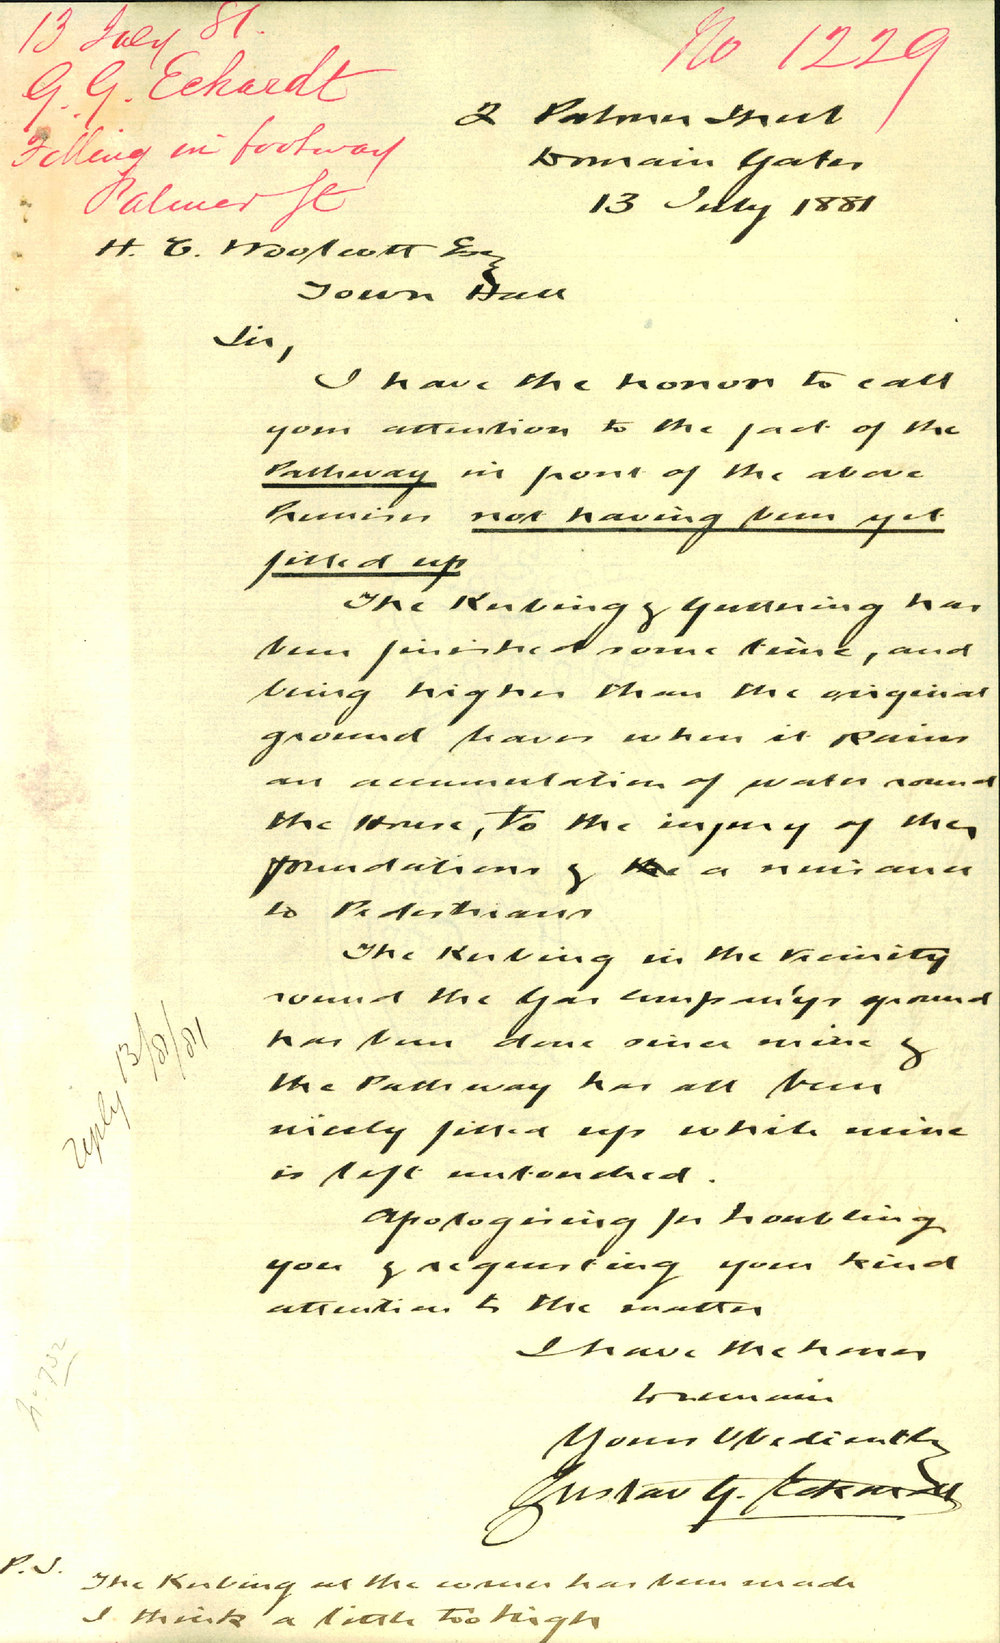 13 July 81.
G. G. Eckardt
Filling in footway
Palmer St
No 1229
2 Palmer Street
Domain Gates
13 July 1881
H. C. Woolcott Esq
Town Hall
Sir,
I have the honor to call
your attention to the fact of the
Pathway in front of the above
Premises not having been yet
filled up
The Kerbing & Guttering has
been finished some time, and
being higher than the original
ground leaves when it Rains
an accumulation of water round
the House, to the injury of the
foundations & a nuisance
to Pedestrians
The Kerbing in the vicinity
round the Gas Company's ground
has been done since mine &
the Pathway has all been
nicely filled up while mine
is left untouched.
Apologising for troubling
you & requesting your kind
attention to the matter
I have the honor
to remain
Yours Obediently
Gustav G. Eckardt
P.S. The Kerbing at the corner has been made
I think a little too high
reply 13/8/81